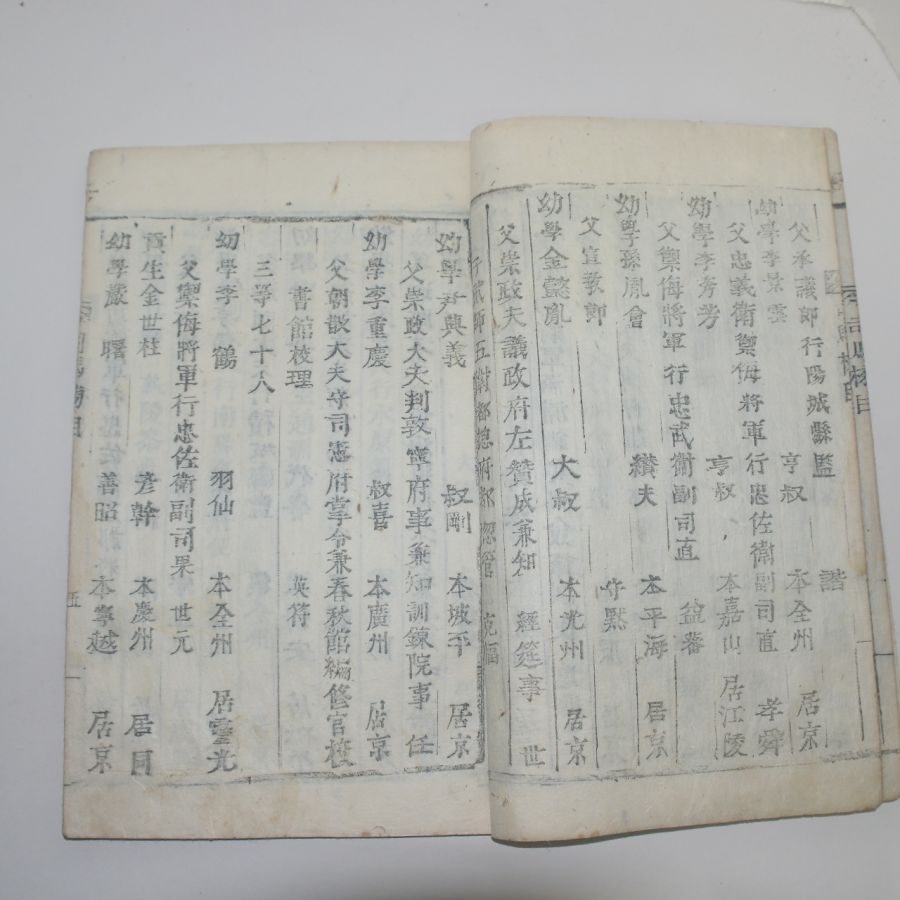 父承議郎行陽城縣監 諧
幼學李景雲 亨叔 本全州 居京
父忠義衛禦侮將軍行忠佐衛副司直 孝舜
幼學李芳 亨叔 本嘉山 居江陵
父禦侮將軍行忠武衛副司直 益蕃
幼學孫胤會 纘夫 本平海 居京
父宣教郎 守默
幼學金懿胤 大叔 本光州 居京
父崇政夫議政府左贊成兼知 經筵事 世
五衛都摠府都摠管
幼學尹興義 叔剛 本坡平 居京
父崇政大夫判敦寧府事兼知訓鍊院事 任
幼學李重慶 叔喜 本廣州 居京
父朝散大夫守司憲府掌令兼春秋館編修官校
書館校理 英符
三等七十人
幼學李鶴 羽仙 本全州 居靈光
父禦侮將軍行忠佐衛副司果 世元
貢生金世柱 彦幹 本慶州 居同
幼學嚴曙 善昭 本寧越 居京
五